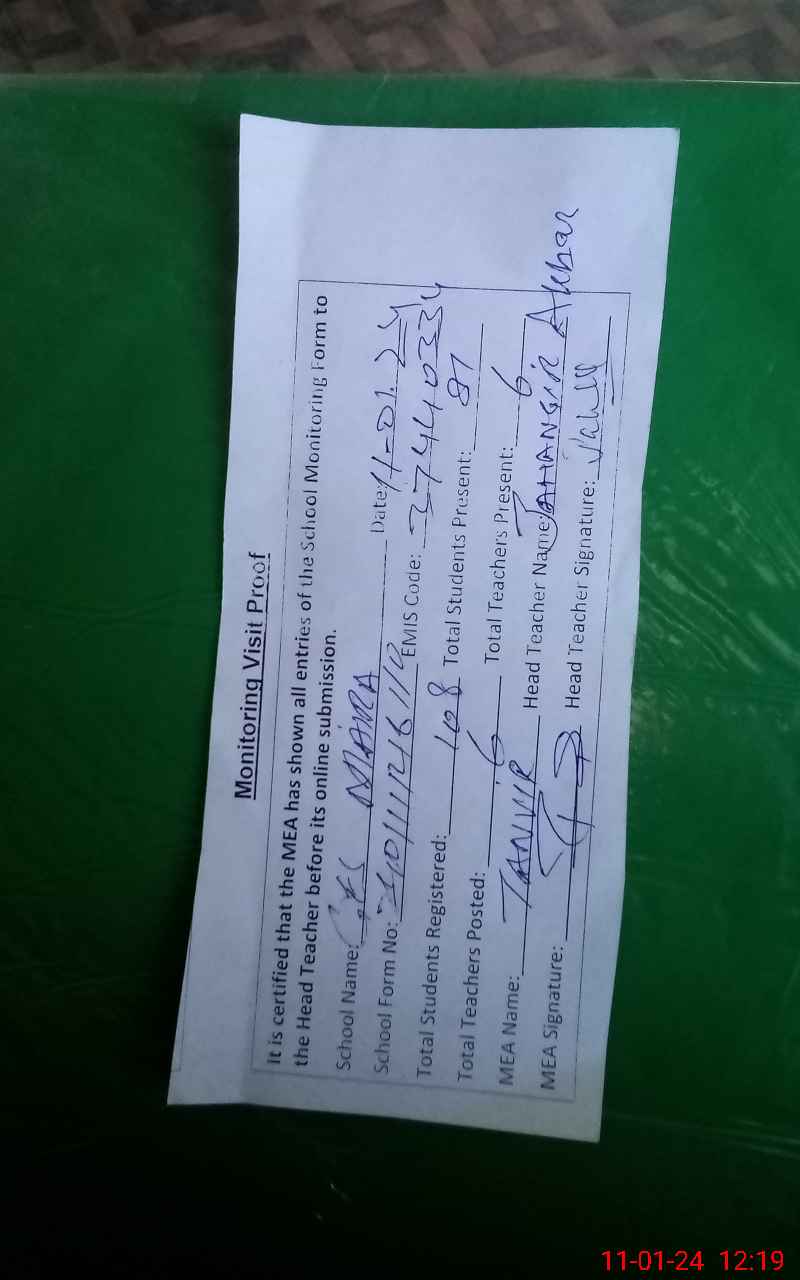 Monitoring Visit Proof
It is certified that the MEA has shown all entries of the School Monitoring Form to
the Head Teacher before its online submission.
School Name: GES MAIRA Date: 11-01.24
School Form No: EMIS Code: 37440334
Total Students Registered: 108 Total Students Present: 81
Total Teachers Posted: 6 Total Teachers Present: 6
MEA Name: TANVIR Head Teacher Name: JAHANGIR Akbar
MEA Signature: Head Teacher Signature:
11-01-24 12:19